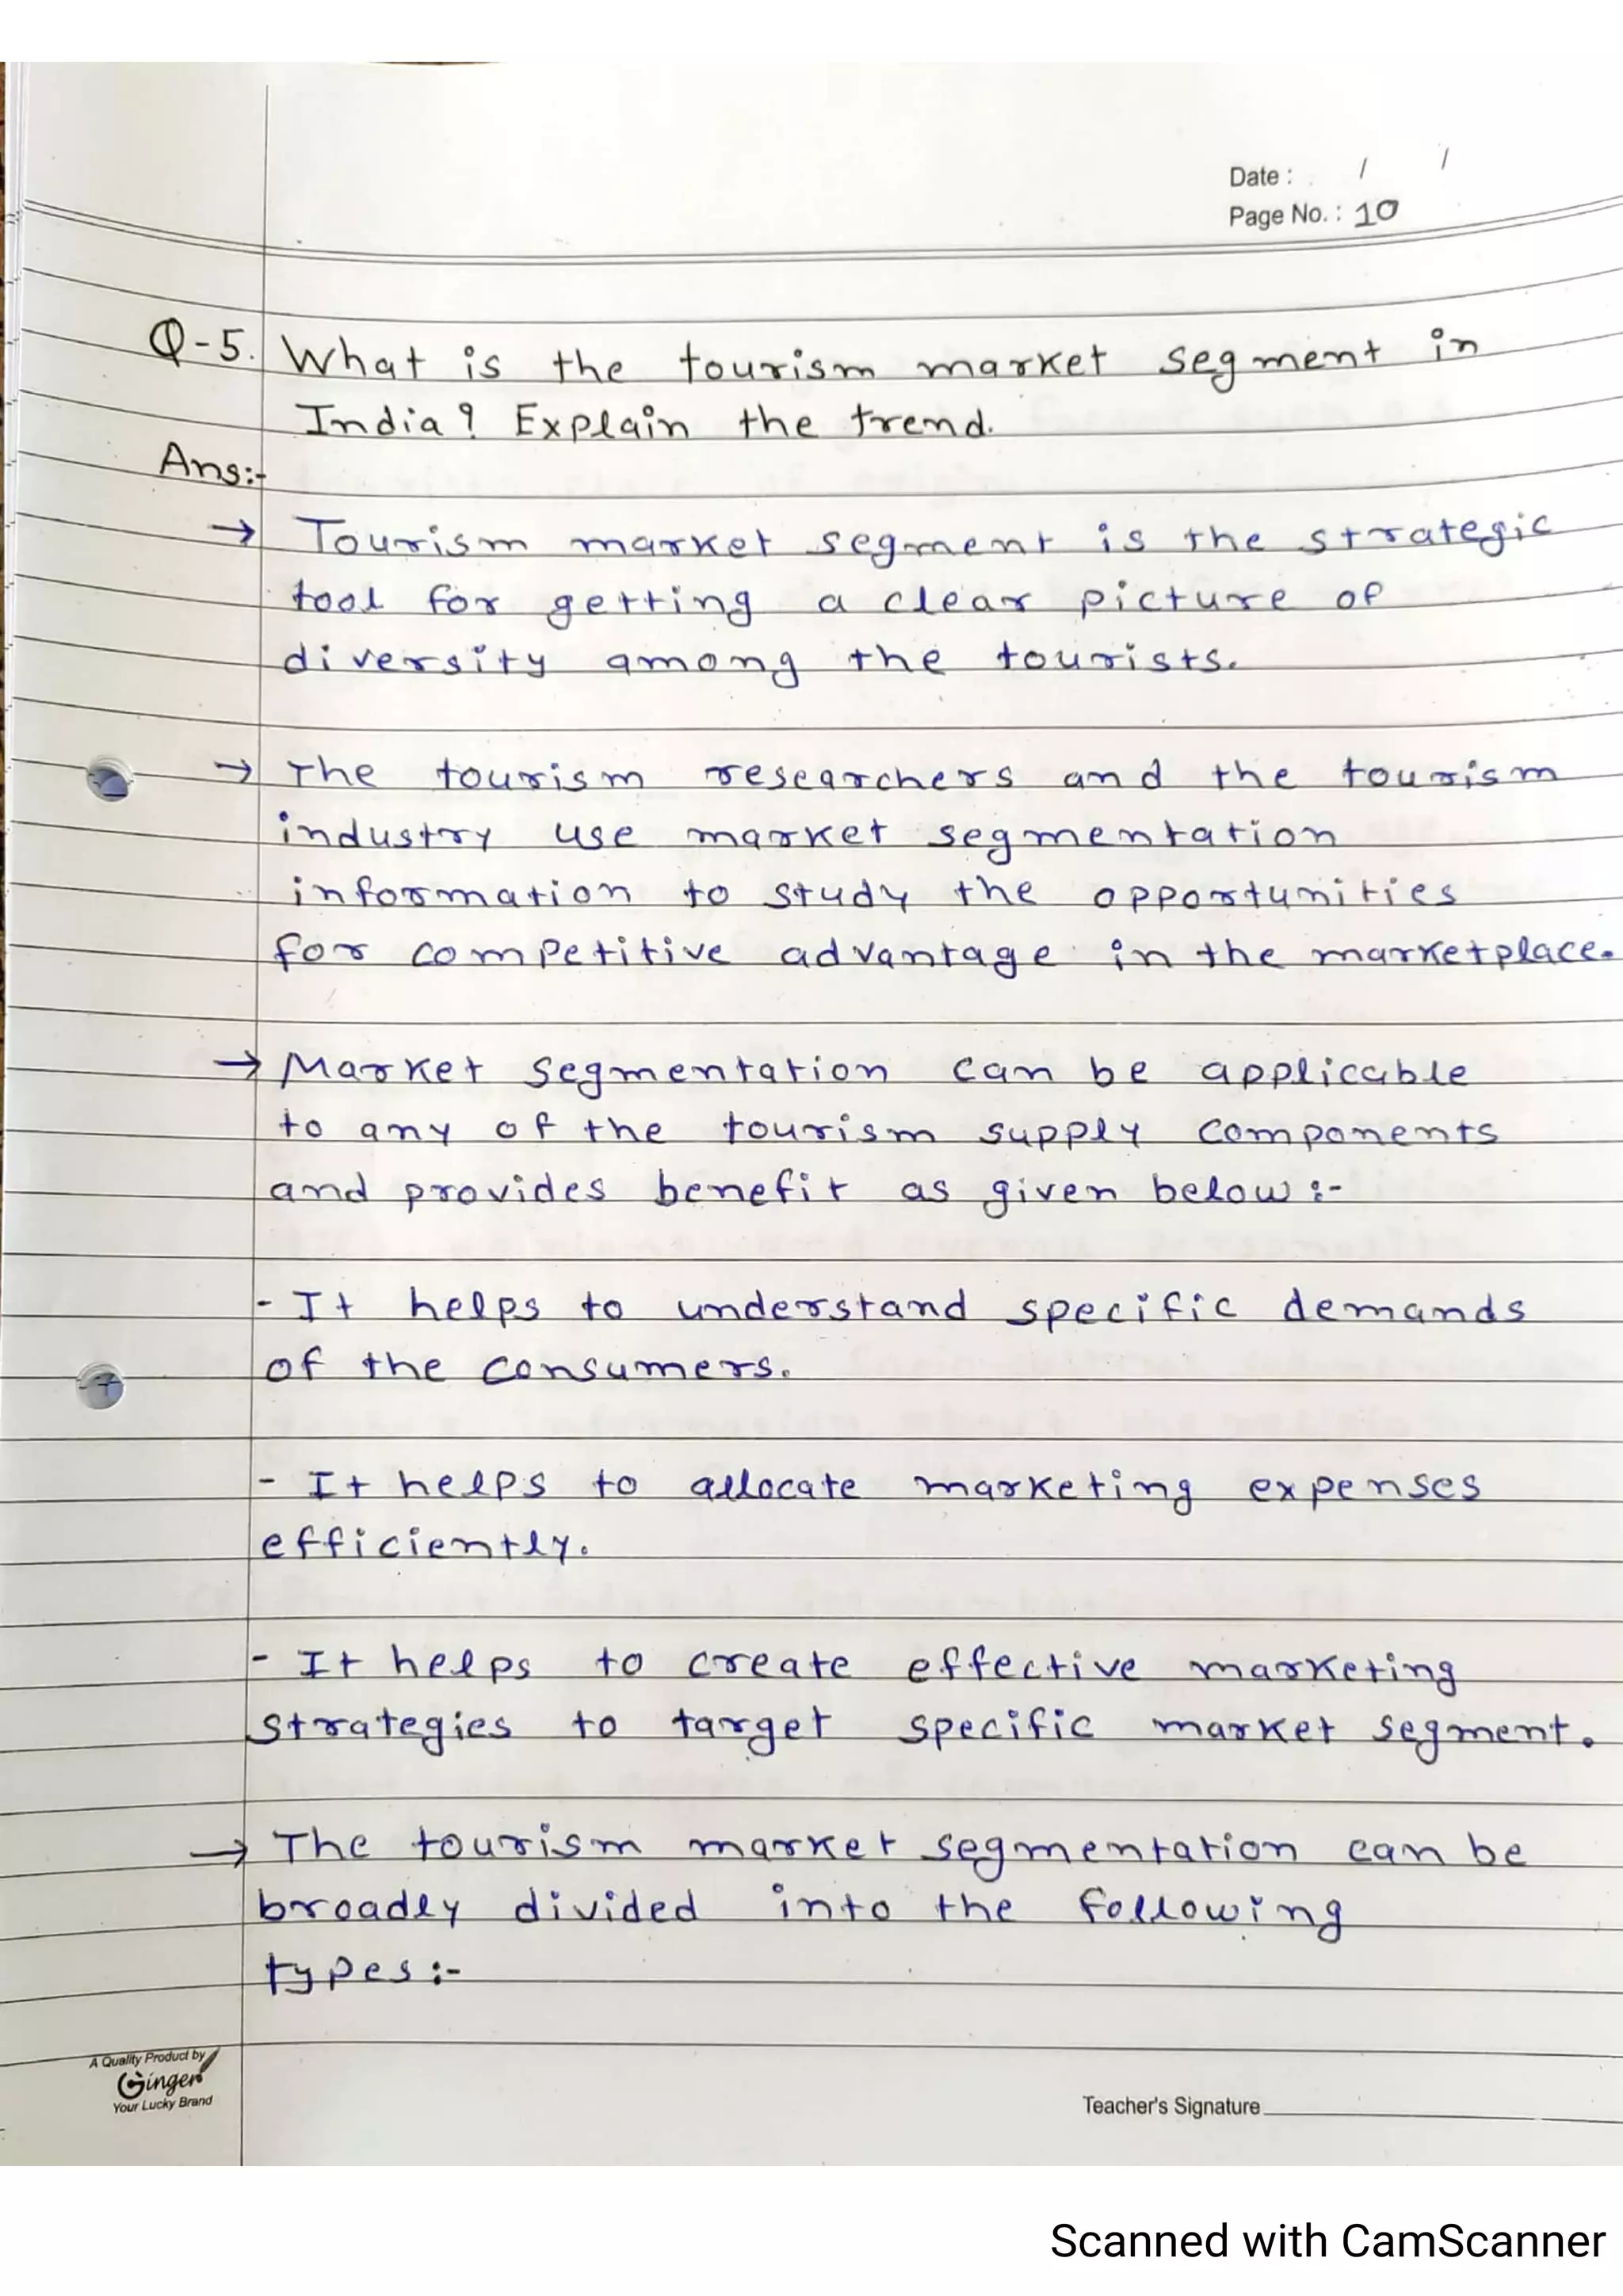 Date : / /
Page No. : 10
Q-5. What is the tourism market segment in
India? Explain the trend.
Ans:-
→ Tourism market segment is the strategic
tool for getting a clear picture of
diversity among the tourists.
→ The tourism researchers and the tourism
industry use market segmentation
information to study the opportunities
for competitive advantage in the marketplace.
→ Market segmentation can be applicable
to any of the tourism supply components
and provides benefit as given below :-
- It helps to understand specific demands
of the consumers.
- It helps to allocate marketing expenses
efficiently.
- It helps to create effective marketing
strategies to target specific market segment.
→ The tourism market segmentation can be
broadly divided into the following
types :-
A Quality Product by
Ginger
Your Lucky Brand
Teacher's Signature
Scanned with CamScanner